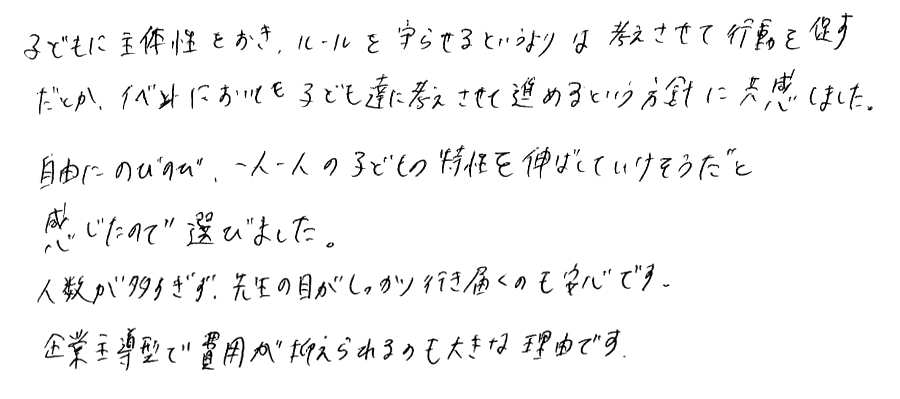 子どもに主体性をおき、ルールを守らせるというよりは考えさせて行動を促す
だとか、イベントにおいても子ども達に考えさせて進めるという方針に共感しました。
自由にのびのび、一人一人の子どもの特性を伸ばしていけそうだと
感じたので選びました。
人数が多すぎず、先生の目がしっかり行き届くのも安心です。
企業主導型で費用が抑えられるのも大きな理由です。